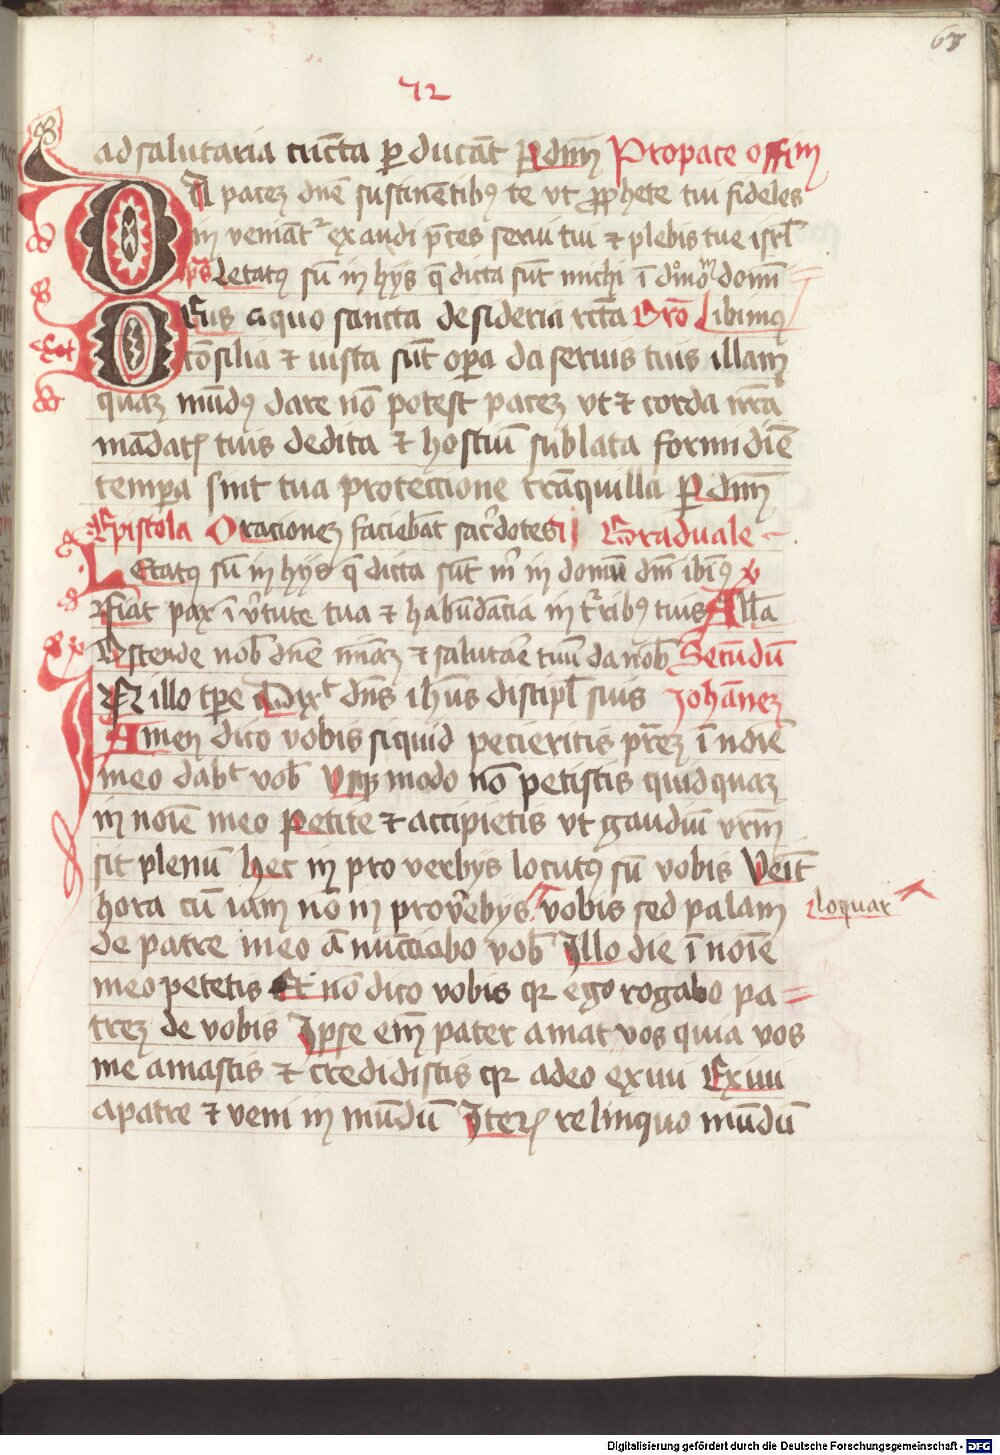 63
72
ad salutaria cūcta ꝑ ducāt P dnm̄ Pro pace offm̄
DA pacez dnē sustinētibꝰ te vt ꝓphete tui fideles
in veniātʳ exaudi p̄ces serui tui ⁊ plebis tue isrl̄
ps̄ Letatꝰ sū in hijs q̄ dicta sūt michi ī domū domī
DEus a quo sancta desideria rcta Orō Libimꝰ
cōsilia ⁊ iusta sūt oꝑa da seruis tuis illam
quaz mūdꝰ dare nō potest pacez vt ⁊ corda nr̄a
mādatꝭ tuis dedita ⁊ hostiū sublata formidiē
temꝑa sint tua protectione trāquilla P dnm̄
Epistola Orationez faciebāt sac̄dotes Graduale
Letatꝰ sū in hijs q̄ dicta sūt m̄ in domū dm̄ ibimꝰ v
Fiat pax ī v̄tute tua ⁊ habūdācia in t̄ribꝰ tuis Alla
Ostende nob̄ dnē miāz ⁊ salutar̄e tuū da nob̄ Secūdū
IN illo tꝑe Dixᵗ dn̄s ihūs discipl̄ suis Johānez
Amen dico vobis siquid pecieritis pr̄ez ī noīe
meo dabᵗ vob̄ Vsqꝫ modo nō petistis quidquaz
in noīe meo Petite ⁊ accipietis vt gaudiū vr̄m
sit plenū hec in pro verbijs locutꝰ sū vobis Veīt
hora cū iam nō in prov̄ebijs vobis sed palam loquar
de patre meo ānuncciabo vob̄ Illo die ī noīe
meo petetis Et nō dico vobis qꝛ ego rogabo pa=
trez de vobis Ipse em̄ pater amat vos quia vos
me amastis ⁊ credidistis qꝛ adeo exiui Exiui
a patre ⁊ veni in mūdū Iterꝭ relinquo mūdū
Digitalisierung gefördert durch die Deutsche Forschungsgemeinschaft - DFG